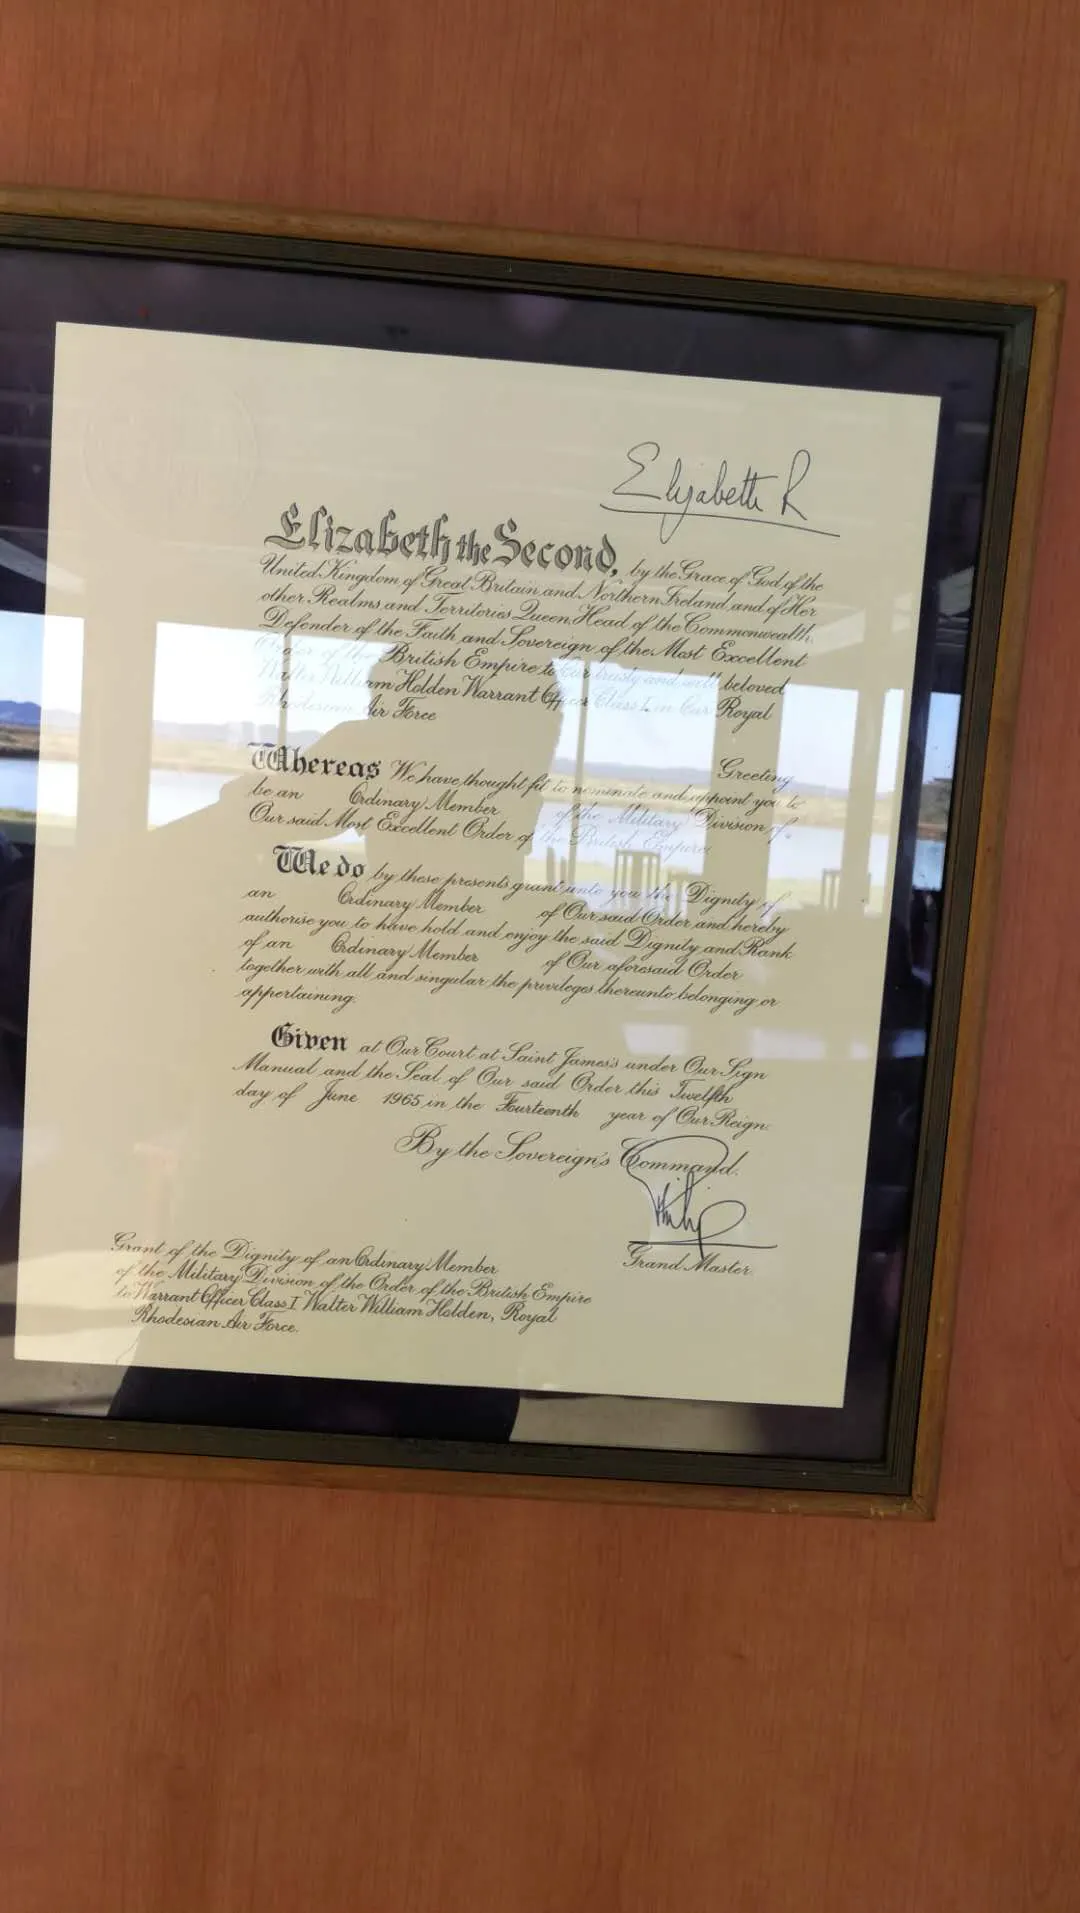 Elizabeth R
Elizabeth the Second, by the Grace of God of the
United Kingdom of Great Britain and Northern Ireland and of Her
other Realms and Territories Queen, Head of the Commonwealth,
Defender of the Faith and Sovereign of the Most Excellent
Order of the British Empire to Our trusty and well beloved
Walter William Holden Warrant Officer Class I in Our Royal
Rhodesian Air Force
Greeting
Whereas We have thought fit to nominate and appoint you to
be an Ordinary Member of the Military Division of
Our said Most Excellent Order of the British Empire
We do by these presents grant unto you the Dignity of
an Ordinary Member of Our said Order and hereby
authorise you to have hold and enjoy the said Dignity and Rank
of an Ordinary Member of Our aforesaid Order
together with all and singular the privileges thereunto belonging or
appertaining.
Given at Our Court at Saint James's under Our Sign
Manual and the Seal of Our said Order this Twelfth
day of June 1965 in the Fourteenth year of Our Reign.
By the Sovereign's Command.
Philip
Grand Master.
Grant of the Dignity of an Ordinary Member
of the Military Division of the Order of the British Empire
to Warrant Officer Class I Walter William Holden, Royal
Rhodesian Air Force.